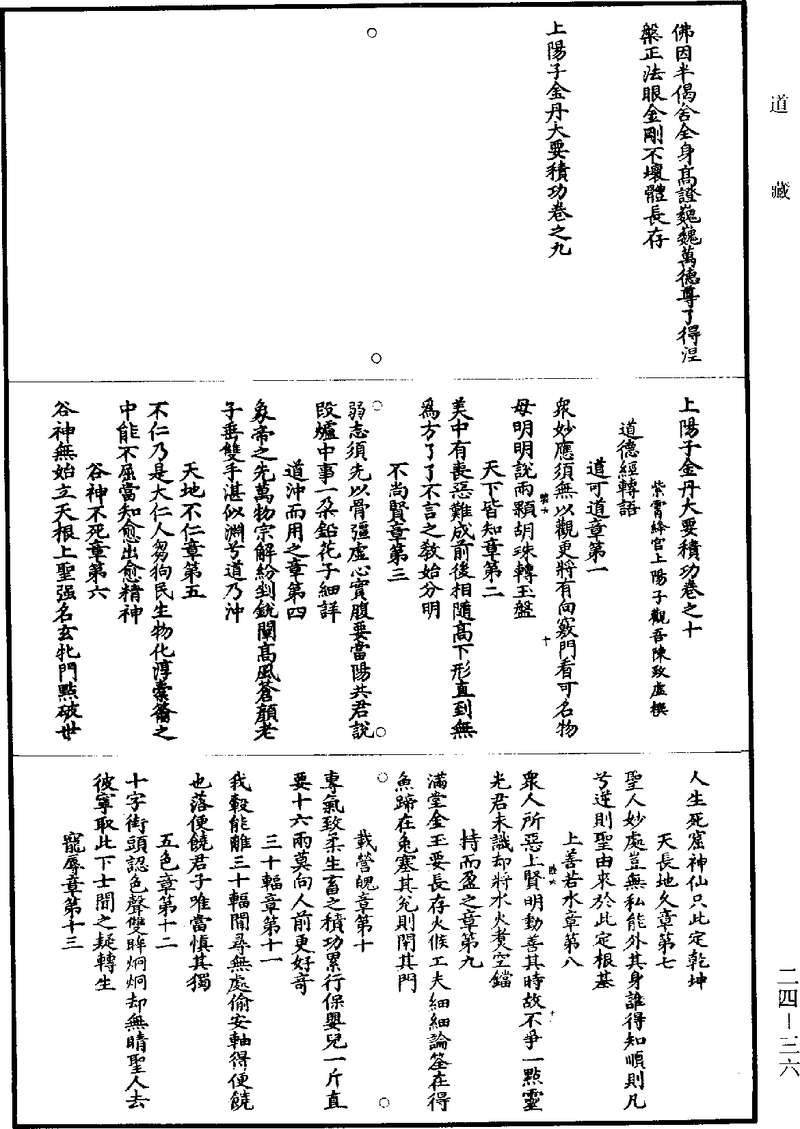 道藏
佛因半偈舍全身高證巍巍萬德尊了得涅
槃正法眼金剛不壞體長存
上陽子金丹大要積功卷之九
上陽子金丹大要積功卷之十
紫霄絳宮上陽子觀吾陳致虛撰
道德經轉語
道可道章第一
眾妙應須無以觀更將有向竅門看可名物
母明明說兩顆胡珠轉玉盤
天下皆知章第二
美中有喪惡難成前後相隨高下形直到無
為方了了不言之教始分明
不尚賢章第三
弱志須先以骨彊虛心實腹要當陽共君說
段爐中事一朶鉛花子細詳
道沖而用之章第四
象帝之先萬物宗解紛剉銳闡高風蒼顏老
子垂雙手湛似淵兮道乃沖
天地不仁章第五
不仁乃是大仁人芻狗民生物化淳橐籥之
中能不屈當知愈出愈精神
谷神不死章第六
谷神無始立天根上聖强名玄牝門點破世
人生死窟神仙只此定乾坤
天長地久章第七
聖人妙處豈無私能外其身誰得知順則凡
兮逆則聖由來於此定根基
上善若水章第八
眾人所惡上賢明動善其時故不爭一點靈
光君未識却將水火煑空鐺
持而盈之章第九
滿堂金玉要長存火候工夫細細論筌在得
魚蹄在兔塞其兊則閉其門
載營魄章第十
專氣致柔生畜之積功累行保嬰兒一斤直
要十六兩莫向人前更好奇
三十輻章第十一
我轂能離三十輻閒尋無處偷安軸得便饒
也落便饒君子唯當慎其獨
五色章第十二
十字街頭認色聲雙眸炯炯却無睛聖人去
彼寧取此下士聞之疑轉生
寵辱章第十三
二四—三六